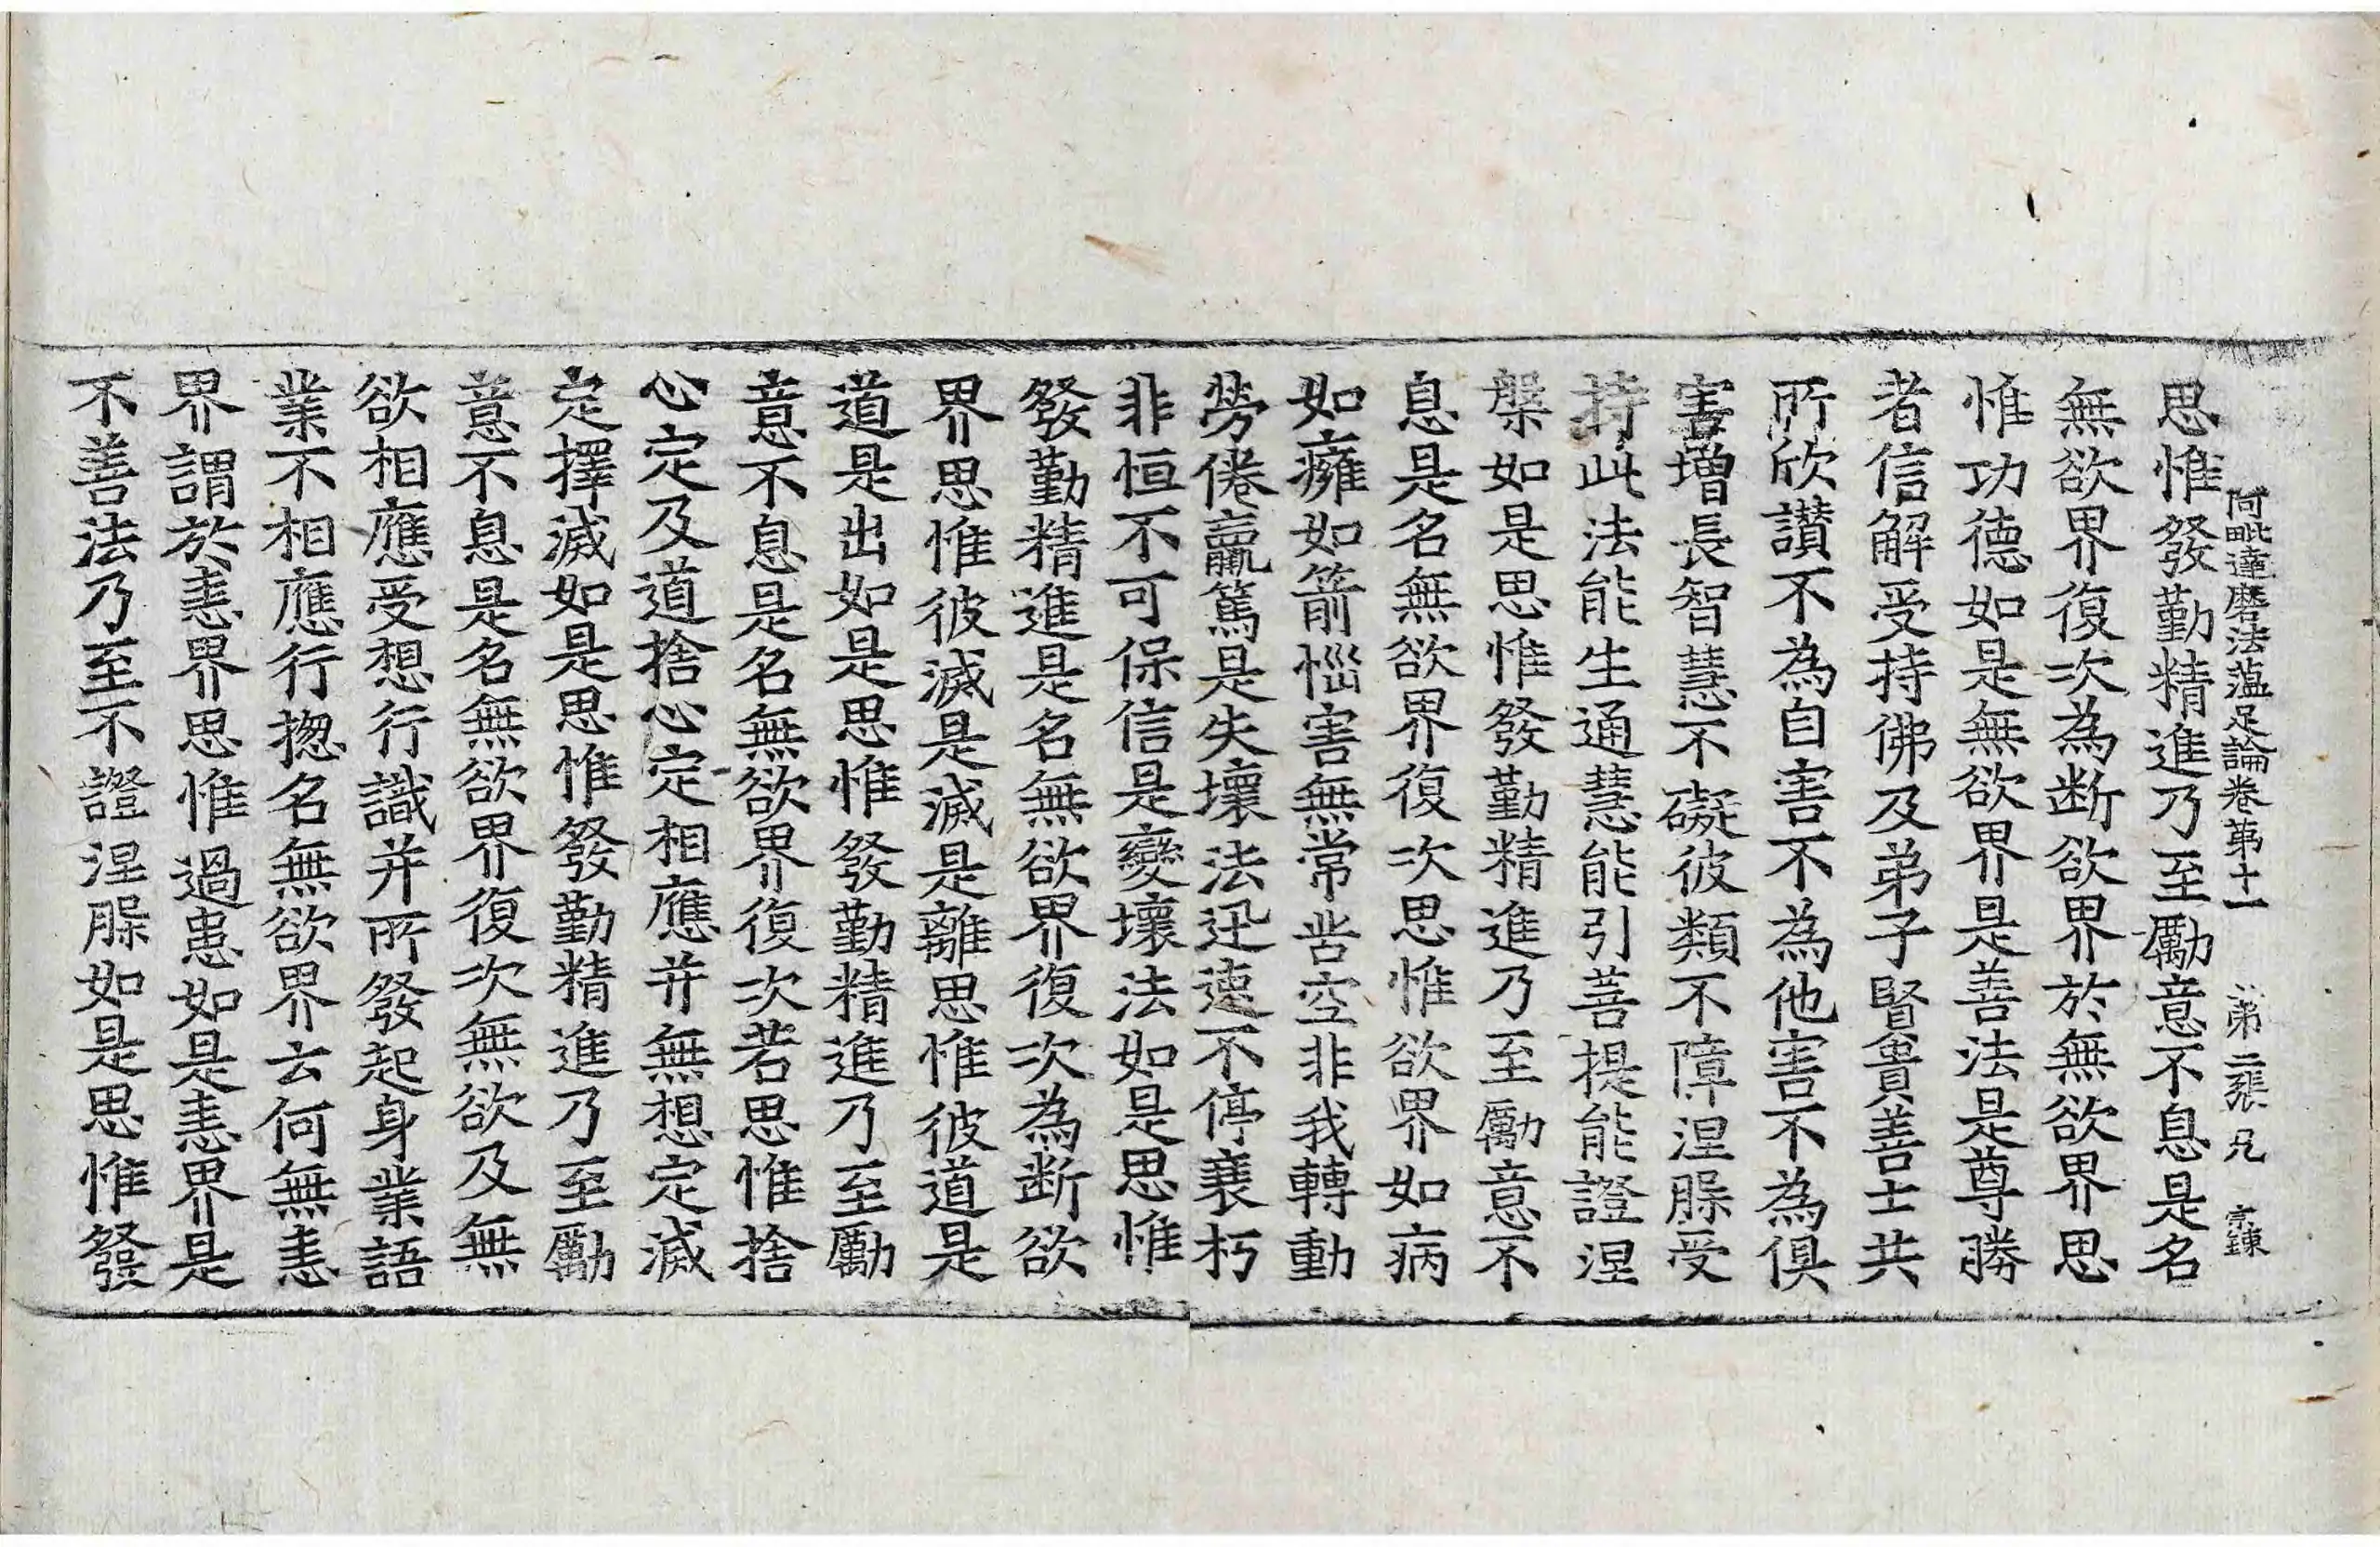 阿毗達磨法蘊足論卷第十一 第二張 凡 宗鍊
思惟發勤精進乃至勵意不息是名
無欲界復次為断欲界於無欲界思
惟功德如是無欲界是善法是尊勝
者信解受持佛及弟子賢貴善士共
所欣讚不為自害不為他害不為俱
害增長智慧不礙彼類不障涅槃受
持此法能生通慧能引菩提能證涅
槃如是思惟發勤精進乃至勵意不
息是名無欲界復次思惟欲界如病
如癰如箭惱害無常苦空非我轉動
勞倦羸篤是失壞法迅速不停衰朽
非恒不可保信是變壞法如是思惟
發勤精進是名無欲界復次為断欲
界思惟彼滅是滅是離思惟彼道是
道是出如是思惟發勤精進乃至勵
意不息是名無欲界復次若思惟捨
心定及道捨心定相應并無想定滅
定擇滅如是思惟發勤精進乃至勵
意不息是名無欲界復次無欲及無
欲相應受想行識并所發起身業語
業不相應行揔名無欲界云何無恚
界謂於恚界思惟過患如是恚界是
不善法乃至不證涅槃如是思惟發